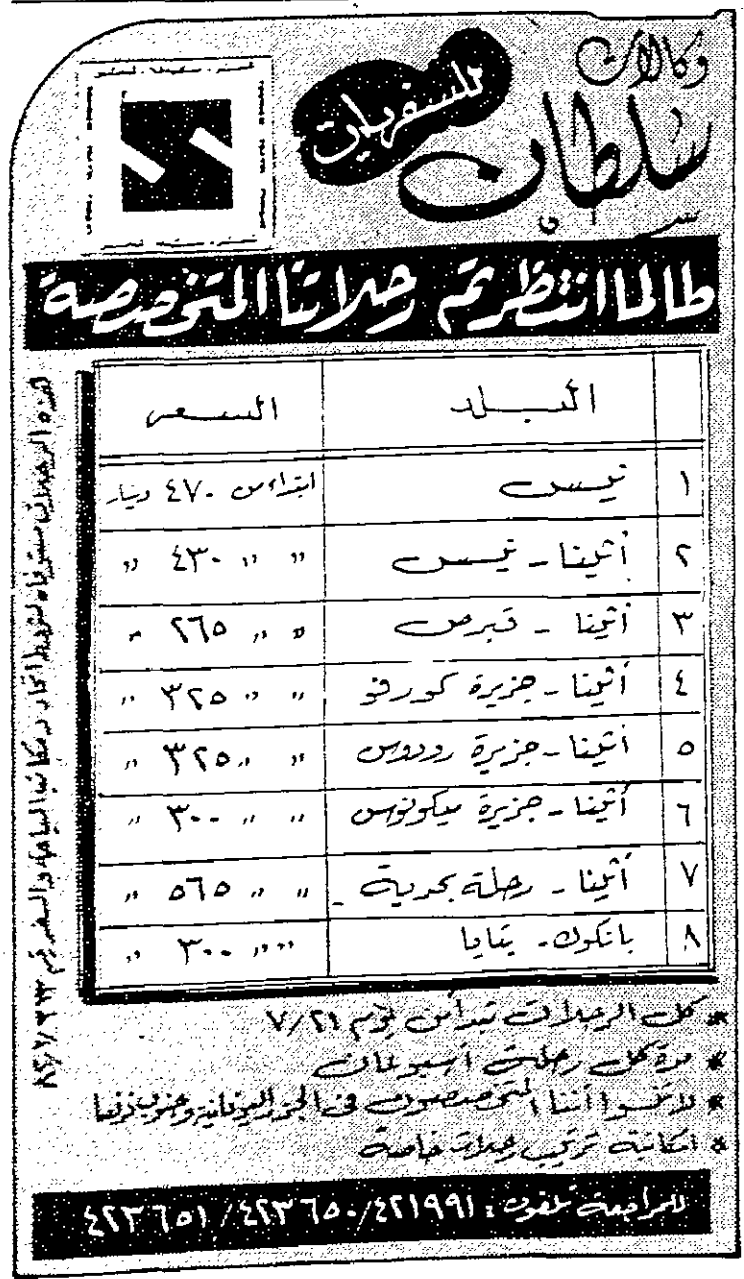 وكالات
سلطان
للسفريات
طالما انتظرتم رحلاتنا المتخصصة
البلد السعر
١ نيس ابتداء من ٤٧٠ دينار
٢ أثينا - نيس " " ٤٣٠ "
٣ أثينا - قبرص " " ٢٦٥ "
٤ أثينا - جزيرة كورفو " " ٣٢٥ "
٥ أثينا - جزيرة رودوس " " ٣٢٥ "
٦ أثينا - جزيرة ميكونوس " " ٣٠٠ "
٧ أثينا - رحلة بحرية - " " ٥٦٥ "
٨ بانكوك - بتايا " " ٣٠٠ "
* كل الرحلات تبدأ من يوم ٧/٢١
* مدة كل رحلة أسبوعان
* لا تنسوا أننا المتخصصون في الجزر اليونانية وجنوب فرنسا
* امكانية ترتيب رحلات خاصة
للمراجعة تلفون: ٤٢١٩٩١/ ٤٢٣٦٥٠/ ٤٢٣٦٥١
هذه الرحلات مستوفاه لشروط اتحاد مكاتب السياحة والسفر رقم